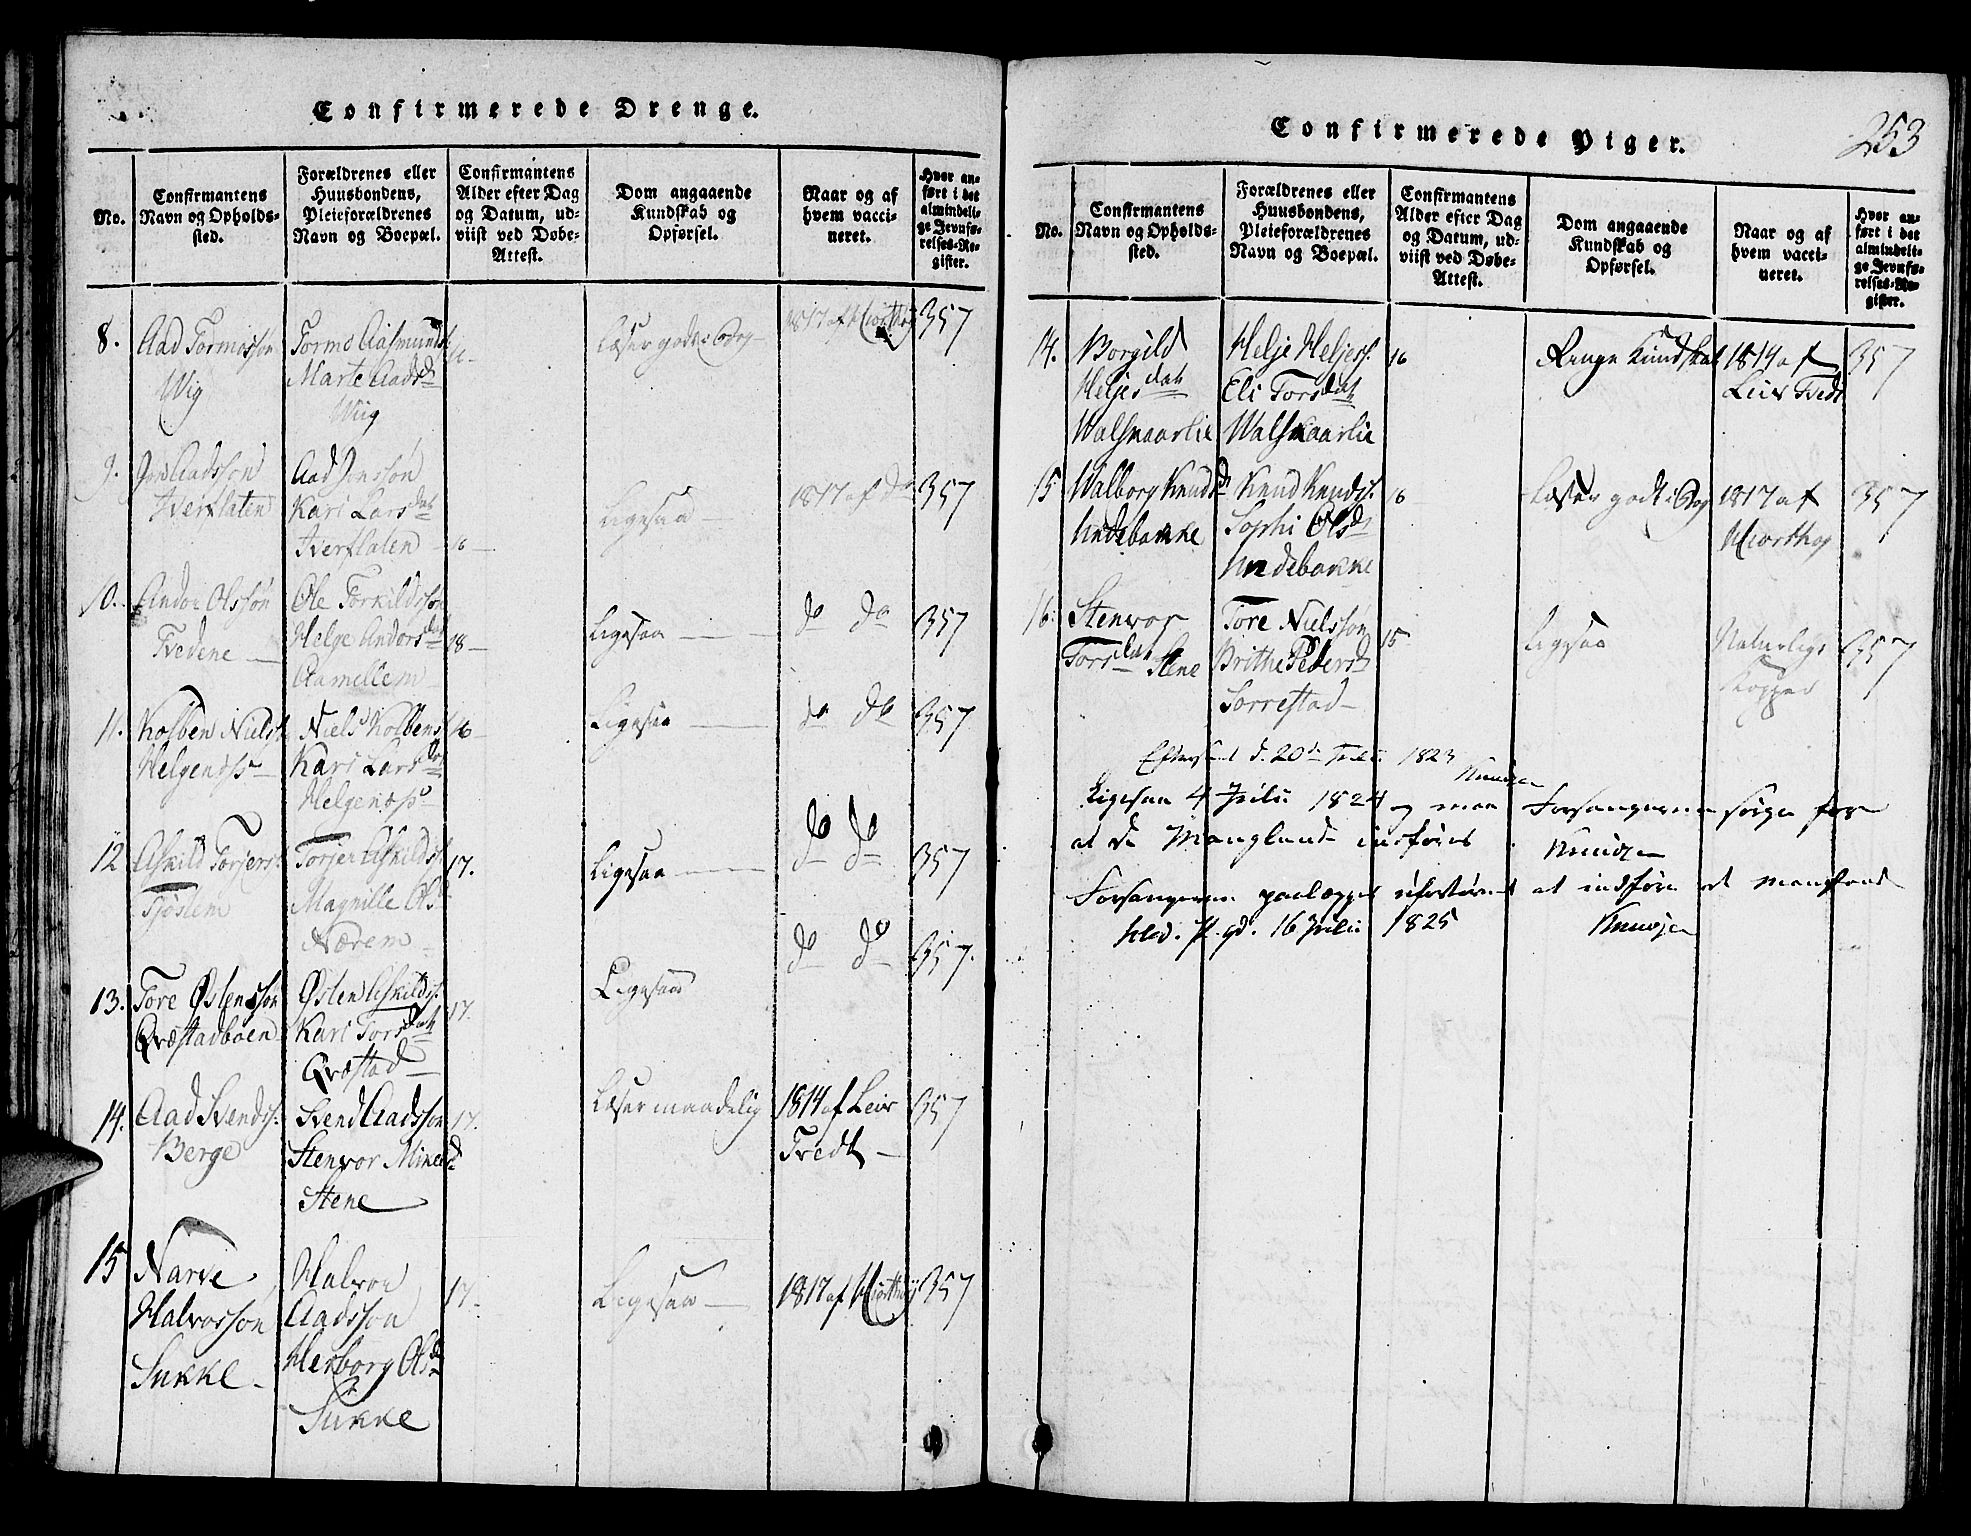 Confirmerede Drenge.
No.
Confirmantens
Navn og Opholds-
sted.
Forældrenes eller
Huusbondens,
Pleieforældrenes
Navn og Boepæl.
Confirmantens
Alder efter Dag
og Datum, ud-
viist ved Døbe-
Attest.
Dom angaaende
Kundskab og
Opførsel.
Naar og af
hvem vacci-
neret.
Hvor an-
ført i det
almindeli-
ge Jevnfø-
relses-Re-
gister.
8.
Aad Tormosson
Wig
Tormo Aasmunds
Marte Aadsd
Wiig
16
Læser godt i Bog
1817 af Hiorthøy
357
9.
Jon Aadssøn
Tverflaten
Aad Jonssøn
Kari Larsdat
Tverflaten
16
Ligesaa
1817 af do
357
10.
Andor Olssøn
Tvedene
Ole Torkildssøn
Helge Andorsdat
18
Ligesaa
do do
357
11.
Kolben Nielss
Helgenæss
Niels Kolbens
Kari Larsd
Helgenæss
16
Ligesaa
do do
357
12
Askild Torjers
Tjøstem
Torjer Askildss.
Magnille Olsd
Nærem
17.
Ligesaa
do do
do do
357
13.
Tore Østenssøn
Qvæstadboen
Østen Askildss.
Kari Torsdat
Qvæstad
17.
Ligesaa
do do
357.
14.
Aad Svendss.
Berge
Svend Aadsson
Stenvor
Stene
17.
Læser maadelig
1814 af Leiv
Tvedt
357
15
Narve
Halvorsson
Sukke
Halvor
Aadsson
Herborg Olsd
Sukke
17.
Ligesaa
1817 af Hiorthøy
357
253
Confirmerede Piger.
No.
Confirmantens
Navn og Opholds-
sted.
Forældrenes eller
Huusbondens,
Pleieforældrenes
Navn og Boepæl.
Confirmantens
Alder efter Dag
og Datum, ud-
viist ved Døbe-
Attest.
Dom angaaende
Kundskab og
Opførsel.
Naar og af
hvem vacci-
neret.
Hvor an-
ført i det
almindeli-
ge Jevnfø-
relses-Re-
gister.
14.
Borgild
Heljesdat
Walskaarlie
Helje Heljess.
Eli Torsdat
Walskaarlie
16
Ringe Kundskab
1814 af
Leiv Tvedt
357
15
Walborg Knudsd
Undebakke
Knud Knudss.
Sophi Olsd
Undebakke
16
Læser godt i Bog
1817 af
Hiorthøy
357
16.
Stenvor
Torsdat Stene
Tore Nielssøn
Brithe Pedersd
Sørrestad
15
Ligesaa
Naturlige
Kopper
357
Efterseet d. 20de Juli 1823
Knudzen
Ligesaa 4 Julii 1824 og maa Forsangeren sørge for
at de Manglende indføres.
Knudzen
Forsangeren paalægges ufortøvet at indføre det manglende
16 Julii 1825
Knudzen